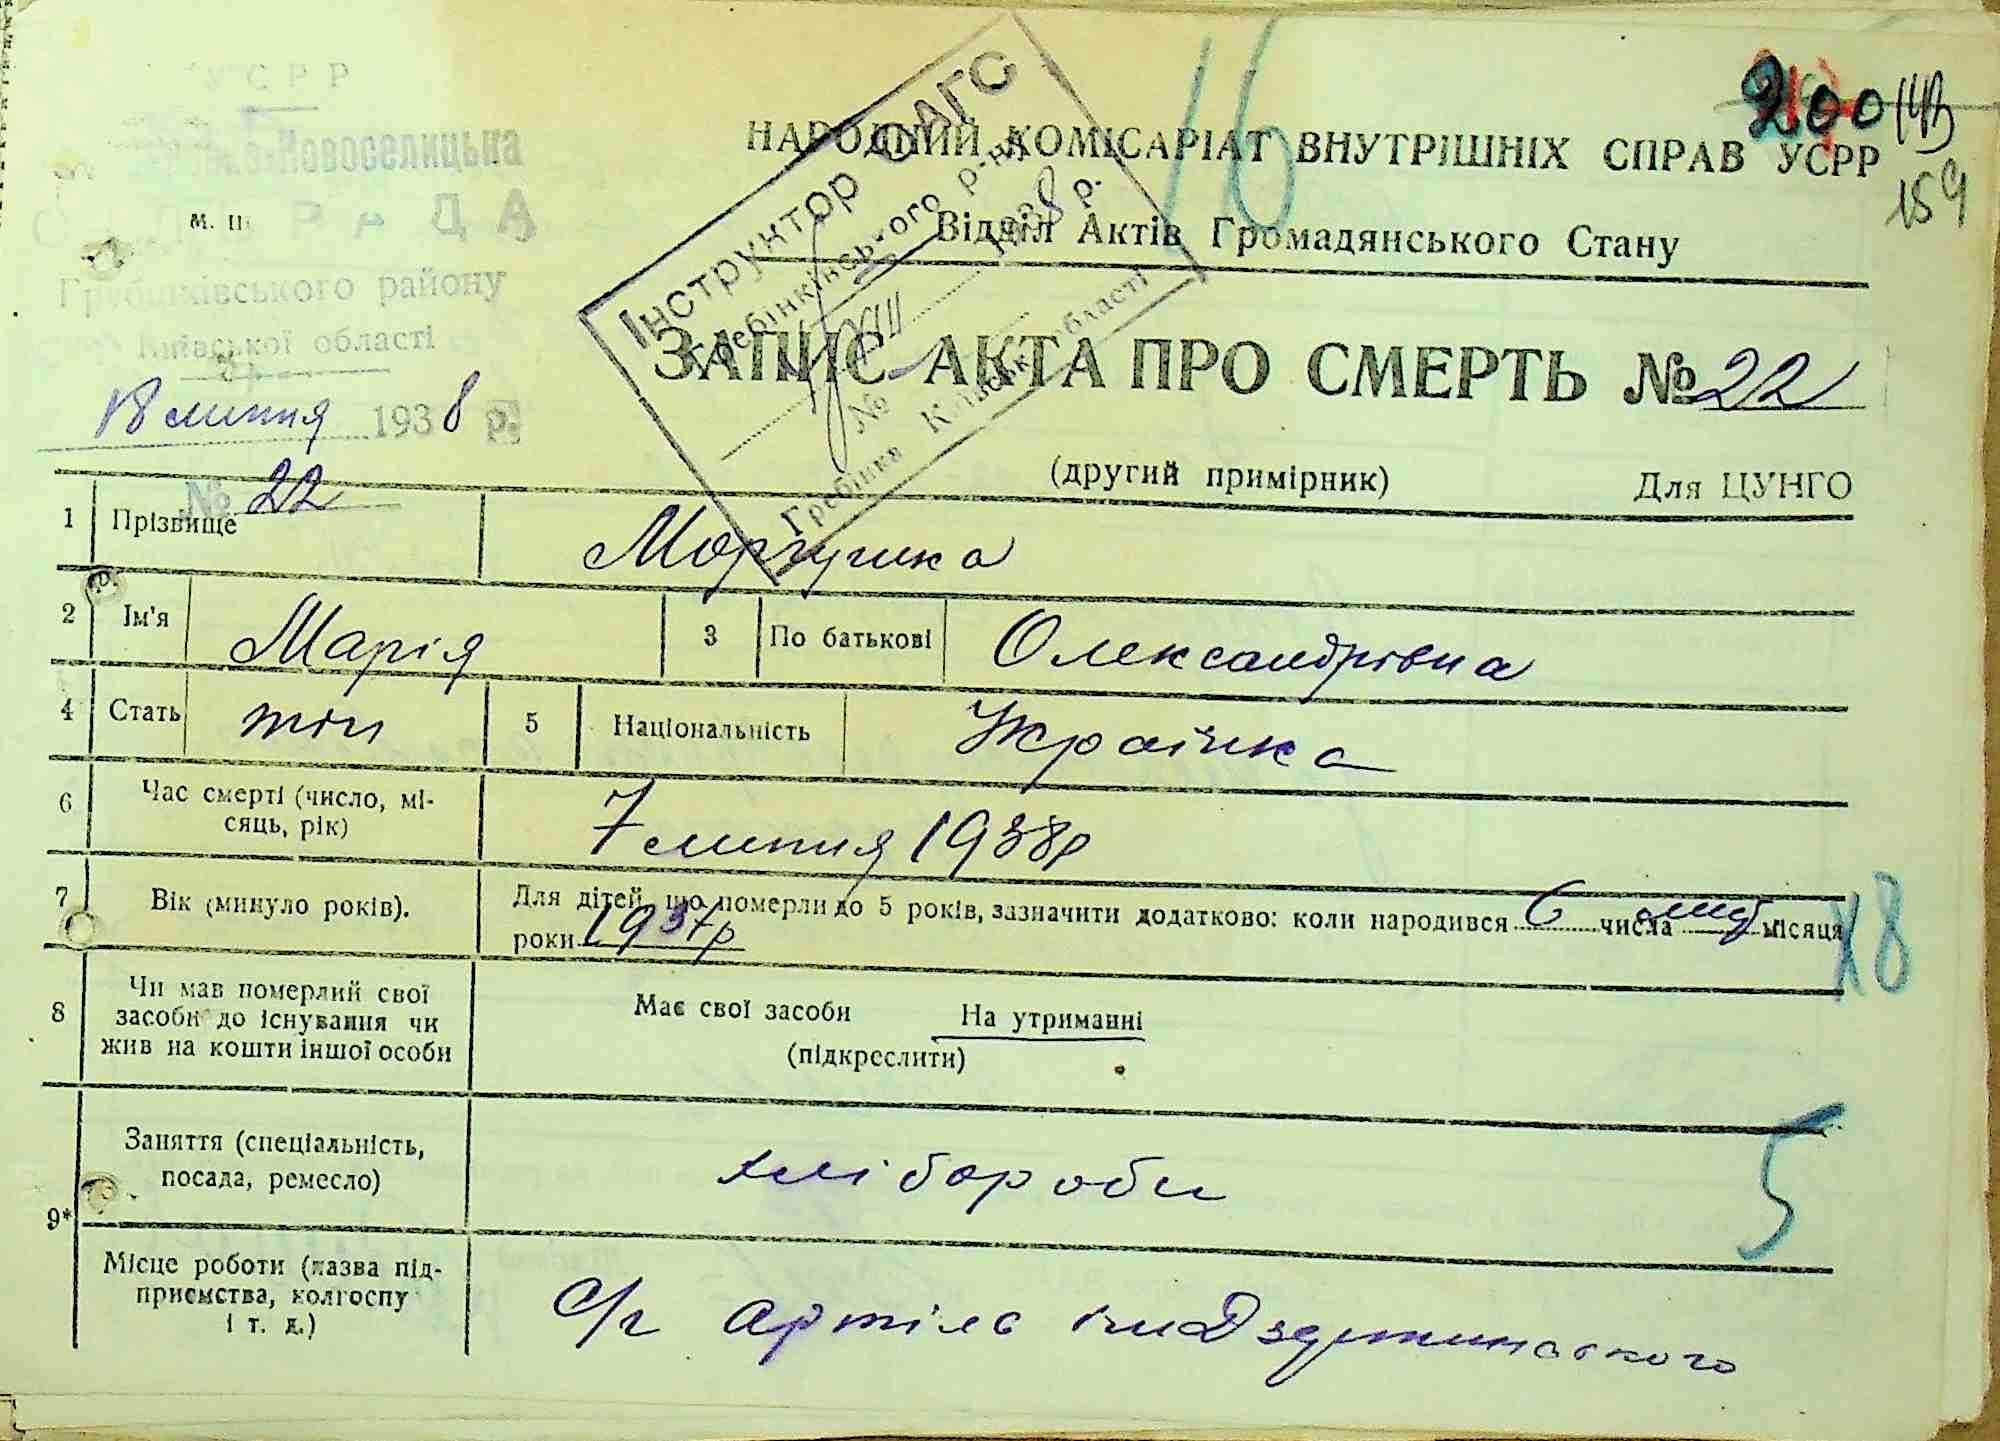 УСРР
Новоселицька
РАДА
м. п.
Гребінківського району
Київської області
18 липня 1938 р.
№ 22
16
200
159
Інструктор ОАГС
Гребінківського р-ну
VIII 1938 р.
№
Гребінка Київськ. області
НАРОДНИЙ КОМІСАРІАТ ВНУТРІШНІХ СПРАВ УСРР
Відділ Актів Громадянського Стану
ЗАПИС АКТА ПРО СМЕРТЬ № 22
(другий примірник) Для ЦУНГО
1 Прізвище Моргушка
2 Ім'я Марія 3 По батькові Олександрівна
4 Стать жін 5 Національність Українка
6 Час смерті (число, мі-
сяць, рік) 7 липня 1938р
7 Вік (минуло років). Для дітей, що померли до 5 років, зазначити додатково: коли народився 6 числа місяця
роки 1937р
Х8
8 Чи мав померлий свої
засоби до існування чи
жив на кошти іншої особи
Має свої засоби На утриманні
(підкреслити)
9* Заняття (спеціальність,
посада, ремесло) хліборобки
5
Місце роботи (назва під-
приємства, колгоспу
і т. д.) с/г артіль ім Дзержинського